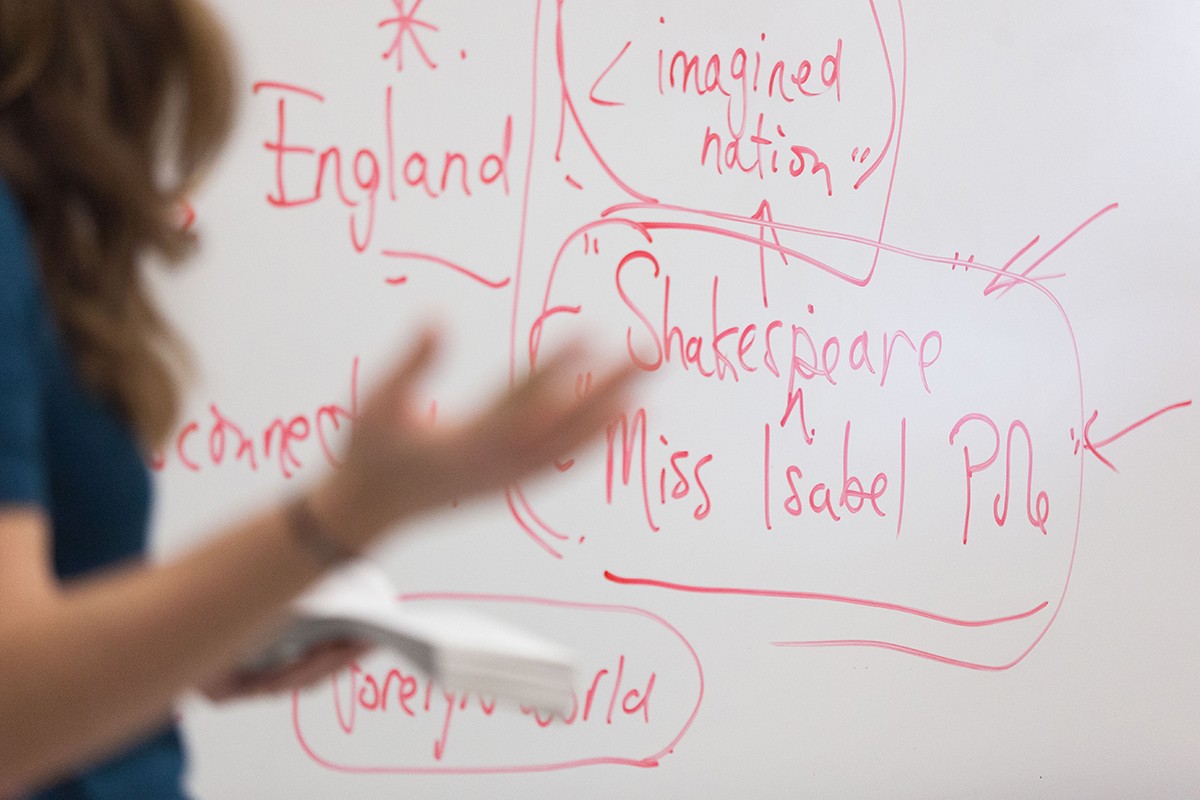 England
"imagined
nation"
"Shakespeare"
h
"Miss Isabel
connect
foreign world